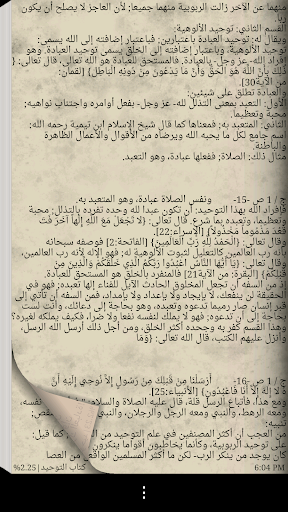 منهما عن الآخر زالت الربوبية منهما جميعا؛ لأن العاجز لا يصلح أن يكون
ربا.
القسم الثاني: توحيد الألوهية:
ويقال له: توحيد العبادة باعتبارين: فباعتبار إضافته إلى الله يسمى:
توحيد الألوهية، وباعتبار إضافته إلى الخلق يسمى توحيد العبادة. وهو
إفراد الله -عز وجل- بالعبادة. فالمستحق للعبادة هو الله تعالى، قال تعالى: {
ذَلِكَ بِأَنَّ اللَّهَ هُوَ الْحَقُّ وَأَنَّ مَا يَدْعُونَ مِنْ دُونِهِ الْبَاطِلُ} [لقمان:
من الآية30].
والعبادة تطلق على شيئين:
الأول: التعبد بمعنى التذلل لله- عز وجل- بفعل أوامره واجتناب نواهيه؛
محبة وتعظيما.
الثاني: المتعبد به؛ فمعناها كما قال شيخ الإسلام ابن تيمية رحمه الله:
اسم جامع لكل ما يحبه الله ويرضاه من الأقوال والأعمال الظاهرة
والباطنة.
مثال ذلك: الصلاة؛ ففعلها عبادة، وهو التعبد.
ج / 1 ص -15- ونفس الصلاة عبادة، وهو المتعبد به.
فإفراد الله بهذا التوحيد: أن تكون عبدا لله وحده تفرده بالتذلل؛ محبة
وتعظيما، وتعبده بما شرع. قال تعالى: {لا تَجْعَلْ مَعَ اللَّهِ إِلَهاً آخَرَ فَتَقْعُدَ
مَذْمُوماً مَخْذُولاً} [الإسراء:22].
وقال تعالى: {الْحَمْدُ لِلَّهِ رَبِّ الْعَالَمِينَ} [الفاتحة:2] فوصفه سبحانه
بأنه رب العالمين كالتعليل لثبوت الألوهية له؛ فهو الإله لأنه رب العالمين،
وقال تعالى: {يَا أَيُّهَا النَّاسُ اعْبُدُوا رَبَّكُمُ الَّذِي خَلَقَكُمْ وَالَّذِينَ مِنْ
قَبْلِكُمْ} [البقرة: من الآية21] فالمنفرد بالخلق هو المستحق للعبادة.
إذ من السفه أن تجعل المخلوق الحادث الآيل للفناء إلها تعبده؛ فهو في
الحقيقة لن ينفعك، لا بإيجاد ولا بإعداد ولا بإمداد، فمن السفه أن تأتي إلى
قبر إنسان صار رميما تدعوه وتعبده، وهو بحاجة إلى دعائك، وأنت لست
بحاجة إلى أن تدعوه؛ فهو لا يملك لنفسه نفعا ولا ضرا، فكيف يملكه لغيره؟
وهذا القسم كفر به وجحده أكثر الخلق، ومن أجل ذلك أرسل الله الرسل،
وأنزل عليهم الكتب، قال الله تعالى: {وَمَا
ج / 1 ص -16- أَرْسَلْنَا مِنْ قَبْلِكَ مِنْ رَسُولٍ إِلَّا نُوحِي إِلَيْهِ أَنَّهُ
لا إِلَهَ إِلَّا أَنَا فَاعْبُدُونِ} [الأنبياء:25].
ومع هذا، فأتباع الرسل قلة، قال عليه الصلاة والسلام
ومعه الرهط، والنبي ومعه الرجل والرجلان، والنبي
من العجب أن أكثر المصنفين في علم التوحيد من
على توحيد الربوبية، وكأنما يخاطبون أقواما ينكرون
يوجد من ينكر الرب- لكن ما أكثر المسلمين الواقعين
كتاب التوحيد | %2.25
6:04 PM